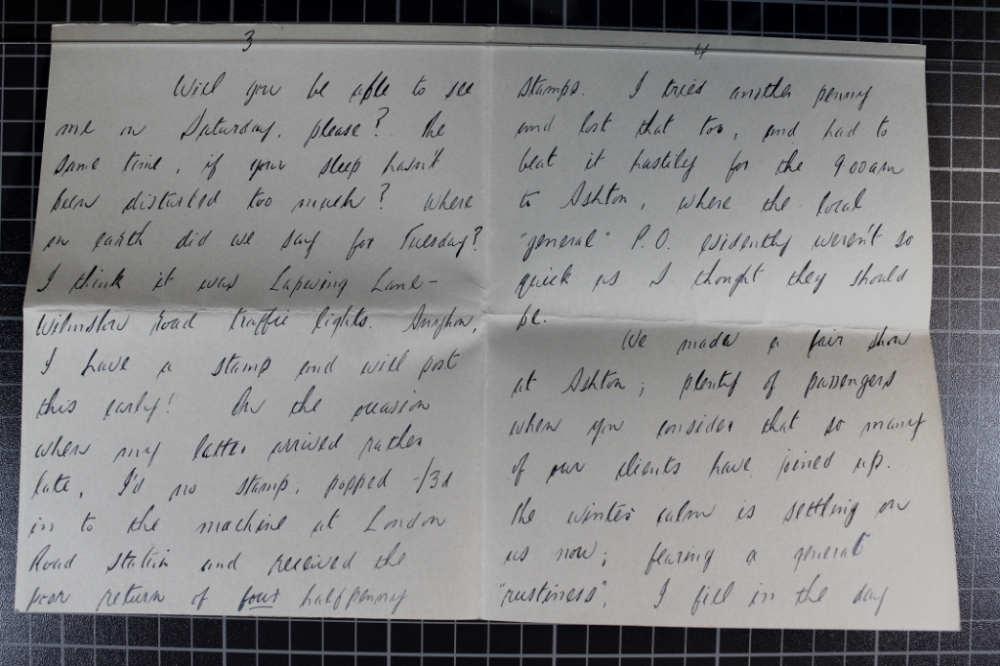 3
Will you be able to see
me on Saturday, please? The
same time, if your sleep hasn't
been disturbed too much? Where
on earth did we say for Tuesday?
I think it was Lapwing Lane -
Wilmslow Road traffic lights. Anyhow,
I have a stamp and will post
this early! On the occasion
when my letter arrived rather
late, I'd no stamp, popped -/3d
in to the machine at London
Road Station and received the
poor return of four halfpenny
4
stamps. I tried another penny
and lost that too, and had to
beat it hastily for the 9.00am
to Ashton, where the local
"general" P.O. evidently weren't so
quick as I thought they should
be.
We made a fair show
at Ashton; plenty of passengers
when you consider that so many
of our clients have joined up.
The winter calm is settling on
us now; fearing a general
"rustiness", I fill in the day